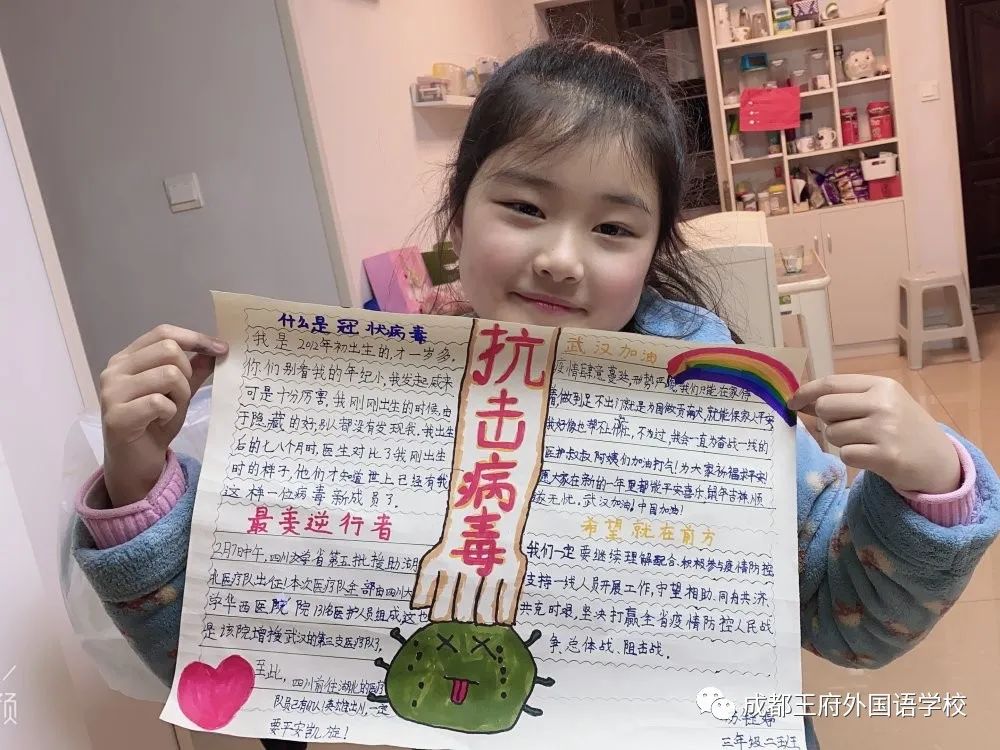 什么是冠状病毒
我是2012年初出生的,才一岁多.
你们别看我的年纪小,我发起威来
可是十分厉害,我刚刚出生的时候,由
于隐藏的好,别人都没有发现我.我出生
后的七八个月时,医生对比了我刚出生
时的样子,他们才知道世上已经有我
这样一位病毒新成员了.
最美逆行者
2月7日中午,四川大学省第五批援助湖
北医疗队出征!本次医疗队全部由四川大
学华西医院院131名医护人员组成这也
是该院增援武汉的第三支医疗队了.
至此,四川前往湖北的医疗
队员已有
要平安凯旋!
抗击病毒
武汉加油
疫情肆意蔓延,形势严峻,我们只能在家待
着做到足不出门就是为国做贡献,就能保家人平安
我好像也帮不上忙,不为过,我会一直为奋战一线的
医护叔叔阿姨们加油打气!为大家祈福求平安!
愿大家在新的一年里都能平安喜乐,鼠年吉祥顺
遂无忧.武汉加油!中国加油!
希望就在前方
我们一定要继续理解配合,积极参与疫情防控
支持一线人员开展工作,守望相助、同舟共济、
共克时艰,坚决打赢全省疫情防控人民战
争、总体战、阻击战.
三年级二班
成都王府外国语学校